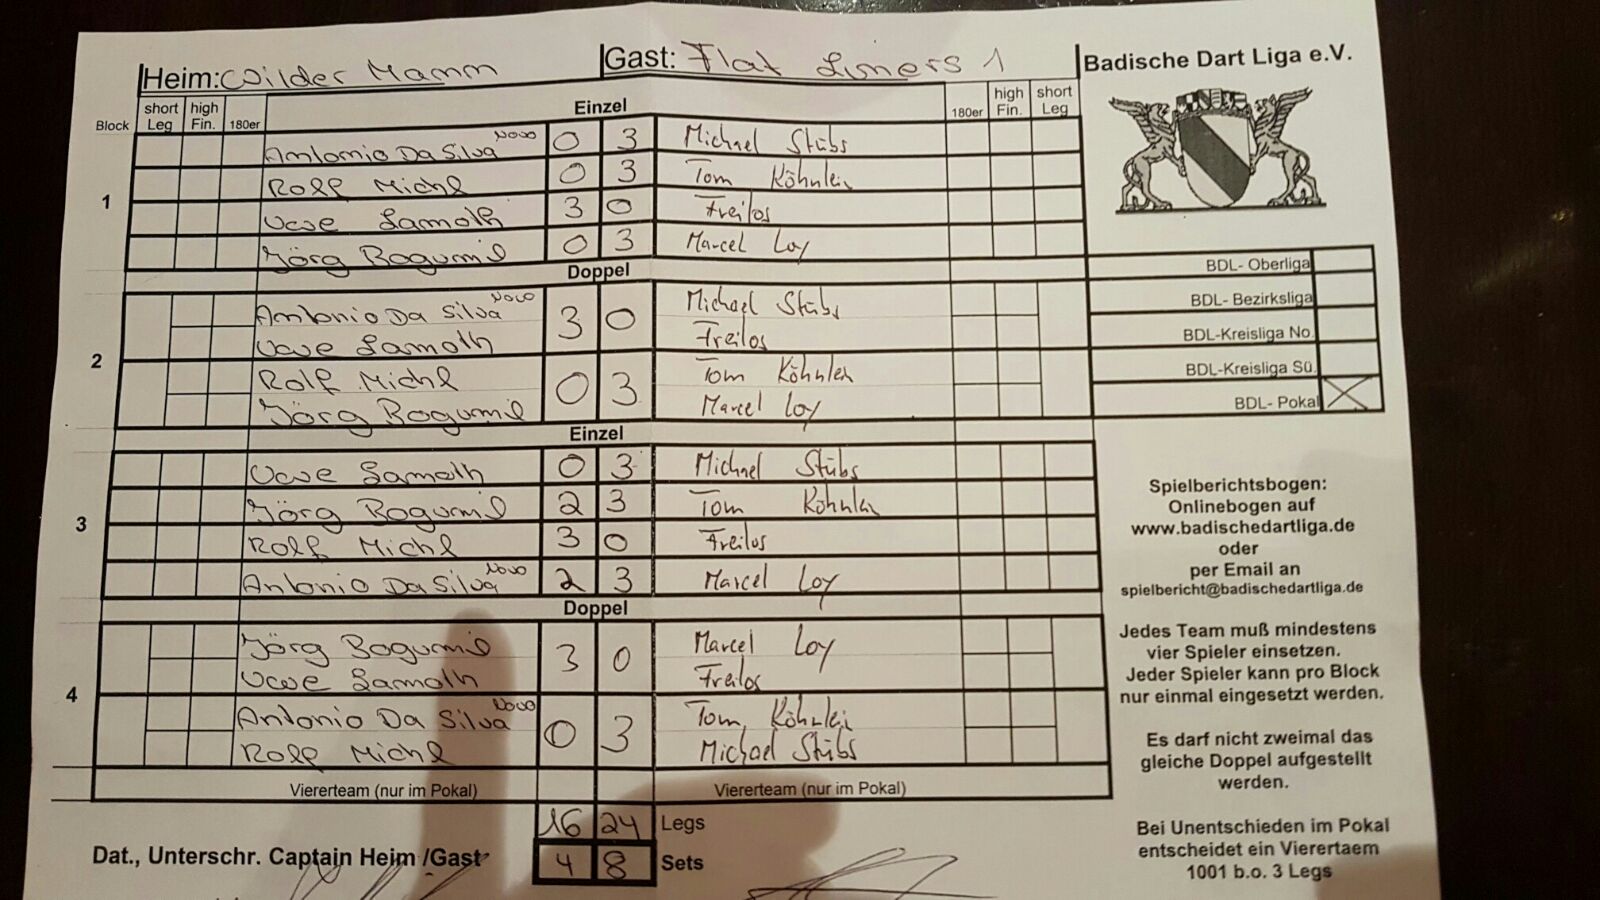 Heim: Wilder Mamm Gast: Flat Liners 1
Badische Dart Liga e.V.
Block short Leg high Fin. 180er Einzel 180er high Fin. short Leg
1
Antonio Da Silva Novo 0 3 Michael Stübs
Rolf Michl 0 3 Tom Köhnlein
Uwe Lamoth 3 0 Freilos
Jörg Bogumil 0 3 Marcel Loy
Doppel
2
Antonio Da Silva Novo 3 0 Michael Stübs
Uwe Lamoth Freilos
Rolf Michl 0 3 Tom Köhnlein
Jörg Bogumil Marcel Loy
Einzel
3
Uwe Lamoth 0 3 Michael Stübs
Jörg Bogumil 2 3 Tom Köhnlein
Rolf Michl 3 0 Freilos
Antonio Da Silva Novo 2 3 Marcel Loy
Doppel
4
Jörg Bogumil 3 0 Marcel Loy
Uwe Lamoth Freilos
Antonio Da Silva Novo 0 3 Tom Köhnlein
Rolf Michl Michael Stübs
Viererteam (nur im Pokal) Viererteam (nur im Pokal)
16 24 Legs
Dat., Unterschr. Captain Heim /Gast 4 8 Sets
BDL- Oberliga
BDL- Bezirksliga
BDL-Kreisliga No.
BDL-Kreisliga Sü.
BDL- Pokal X
Spielberichtsbogen:
Onlinebogen auf
www.badischedartliga.de
oder
per Email an
spielbericht@badischedartliga.de
Jedes Team muß mindestens
vier Spieler einsetzen.
Jeder Spieler kann pro Block
nur einmal eingesetzt werden.
Es darf nicht zweimal das
gleiche Doppel aufgestellt
werden.
Bei Unentschieden im Pokal
entscheidet ein Vierertaem
1001 b.o. 3 Legs